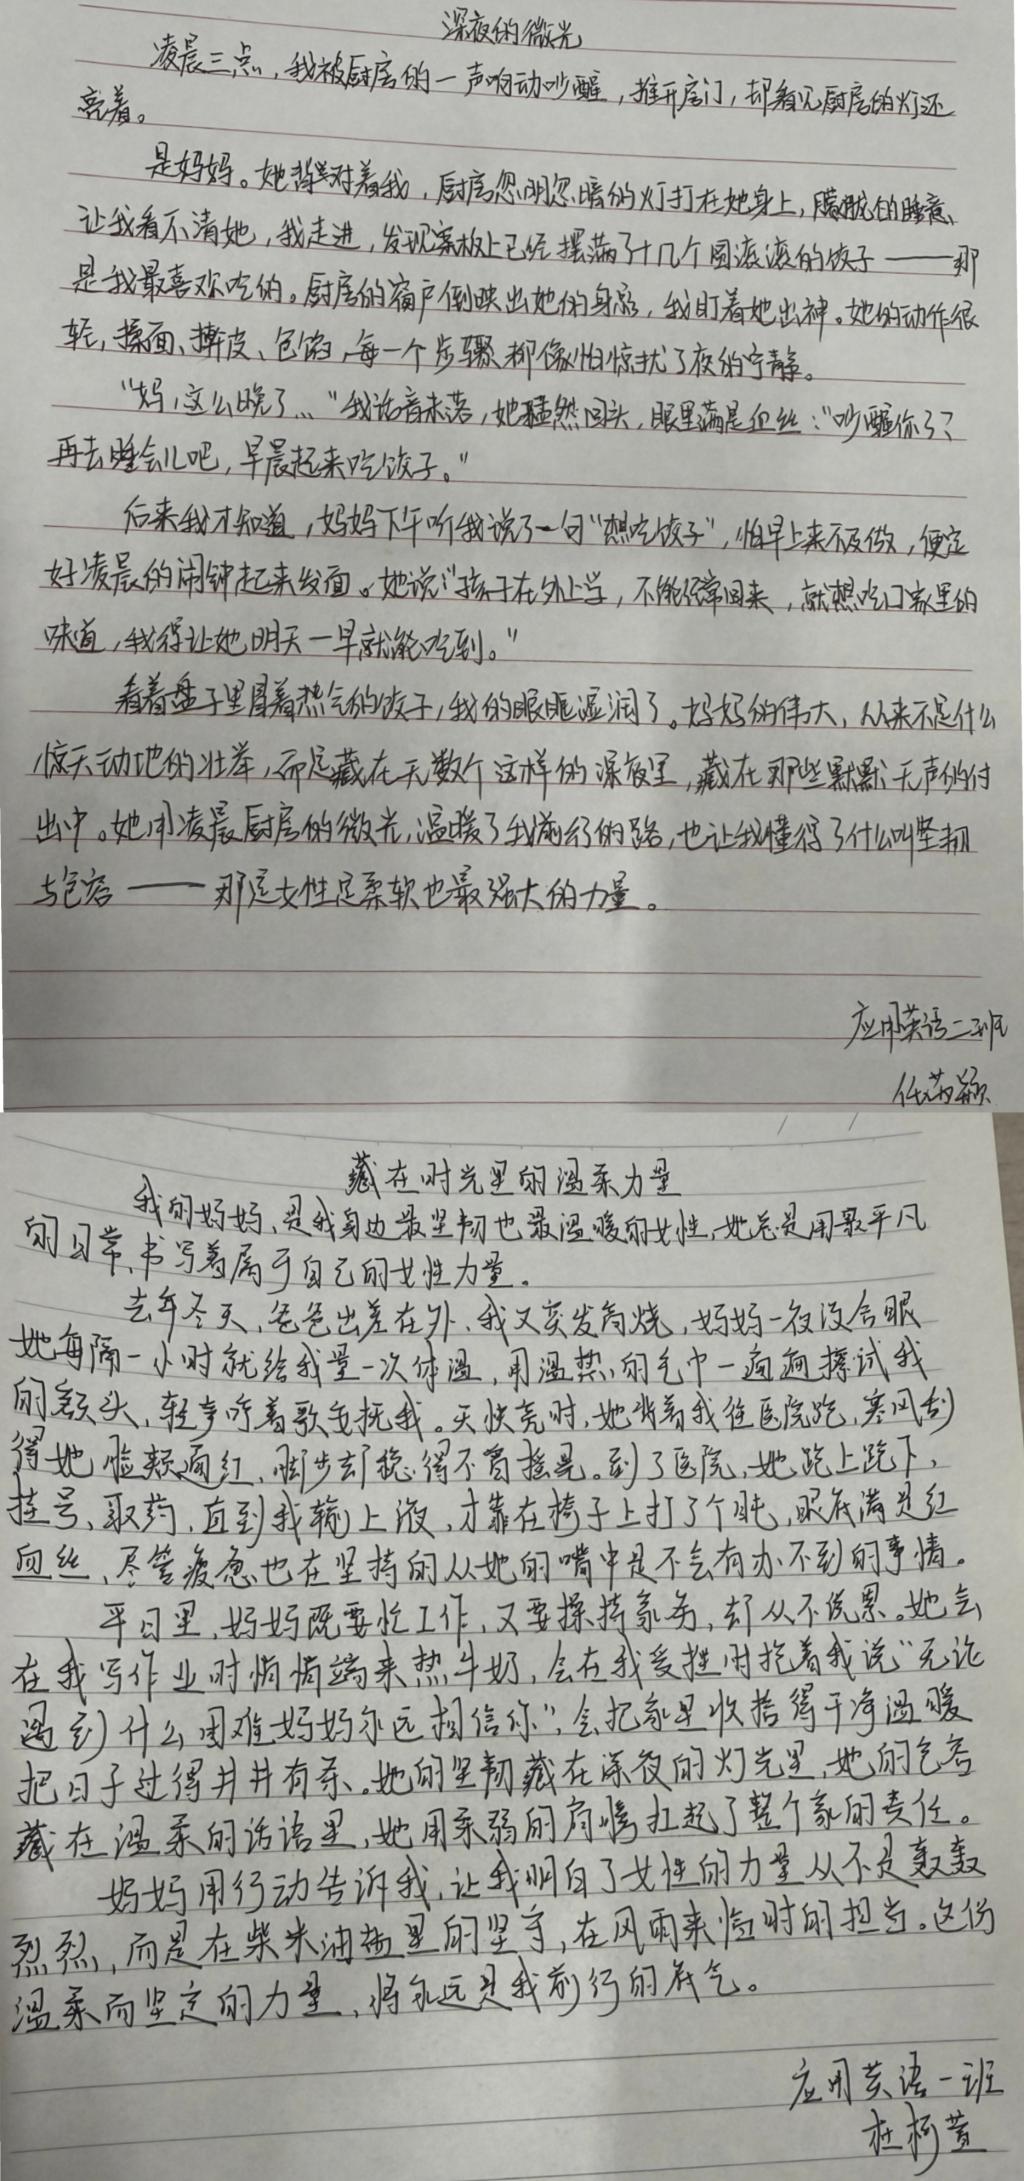 深夜的微光
凌晨三点，我被厨房的一声响动吵醒，推开房门，却看见厨房的灯还
亮着。
是妈妈。她背对着我，厨房忽明忽暗的灯打在她身上，朦胧的睡意
让我看不清她，我走进，发现案板上已经摆满了十几个圆滚滚的饺子——那
是我最喜欢吃的。厨房的窗户倒映出她的身影，我盯着她出神。她的动作很
轻，揉面、擀皮、包馅，每一个步骤都像怕惊扰了夜的宁静。
“妈，这么晚了…“我话音未落，她猛然回头，眼里满是血丝：“吵醒你了？
再去睡会儿吧，早晨起来吃饺子。”
后来我才知道，妈妈下午听我说了一句“想吃饺子”，怕早上来不及做，便定
好凌晨的闹钟起来发面。她说：“孩子在外上学，不能经常回来，就想吃口家里的
味道，我得让她明天一早就能吃到。”
看着盘子里冒着热气的饺子，我的眼眶湿润了。妈妈的伟大，从来不是什么
惊天动地的壮举，而是藏在无数个这样的深夜里，藏在那些默默无声的付
出中。她用凌晨厨房的微光，温暖了我前行的路，也让我懂得了什么叫坚韧
与包容——那是女性是柔软也最强大的力量。
应用英语二班
任 颖
藏在时光里的温柔力量
我的妈妈，是我身边最坚韧也最温暖的女性，她总是用最平凡
的日常，书写着属于自己的女性力量。
去年冬天，爸爸出差在外，我又突发高烧，妈妈一夜没合眼
她每隔一小时就给我量一次体温，用温热的毛巾一遍遍擦试我
的额头，轻声哼着歌安抚我。天快亮时，她背着我往医院跑，寒风刮
得她脸颊通红，脚步却稳得不曾摇晃。到了医院，她跑上跑下，
挂号、取药，直到我输上液，才靠在椅子上打了个盹，眼底满是红
血丝，尽管疲惫也在坚持的从她的嘴中是不会有办不到的事情。
平日里，妈妈既要忙工作，又要操持家务，却从不说累。她会
在我写作业时悄悄端来热牛奶，会在我受挫时抱着我说“无论
遇到什么困难妈妈永远相信你”，会把家里收拾得干净温暖
把日子过得井井有条。她的坚韧藏在深夜的灯光里，她的包容
藏在温柔的话语里，她用柔弱的肩膀扛起了整个家的责任。
妈妈用行动告诉我，让我明白了女性的力量从不是轰轰
烈烈，而是在柴米油盐里的坚守，在风雨来临时的担当。这份
温柔而坚定的力量，将永远是我前行的底气。
应用英语一班
杜柯萱